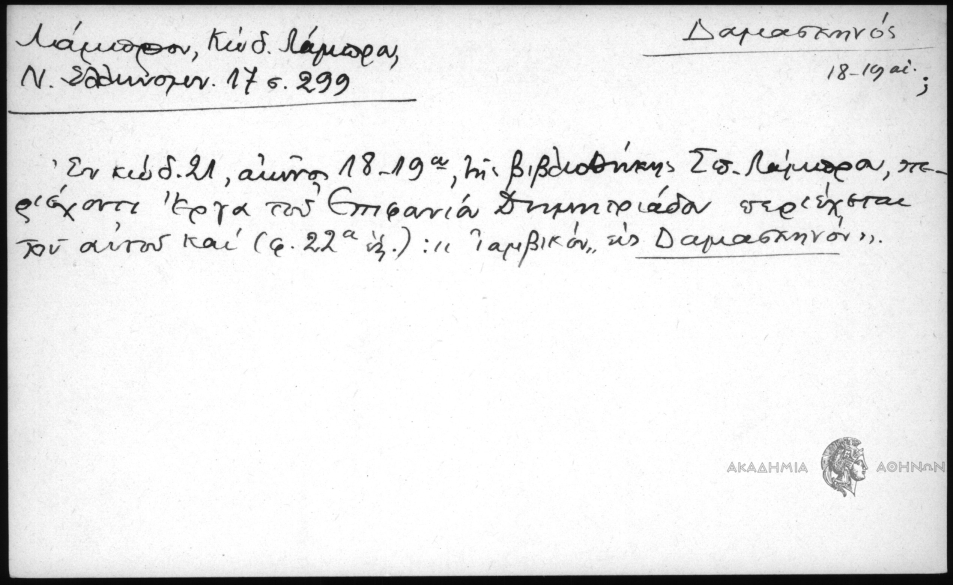 Λάμπρου, Κώδ. Λάμπρα,
Ν. Ἑλληνομν. 17 σ. 299
Δαμασκηνός
18-19 αἰ. ;
Ἐν κώδ. 21, αἰῶνος 18-19ου, τῆς βιβλιοθήκης Σπ. Λάμπρου, πε-
ριέχοντι Ἔργα τοῦ Ἐπιφανίου Δημητριάδου περιέχεται
τοῦ αὐτοῦ καί (φ. 22α ἑξ.) : „Ἰαμβικόν„ εἰς Δαμασκηνόν".
ΑΚΑΔΗΜΙΑ ΑΘΗΝΩΝ